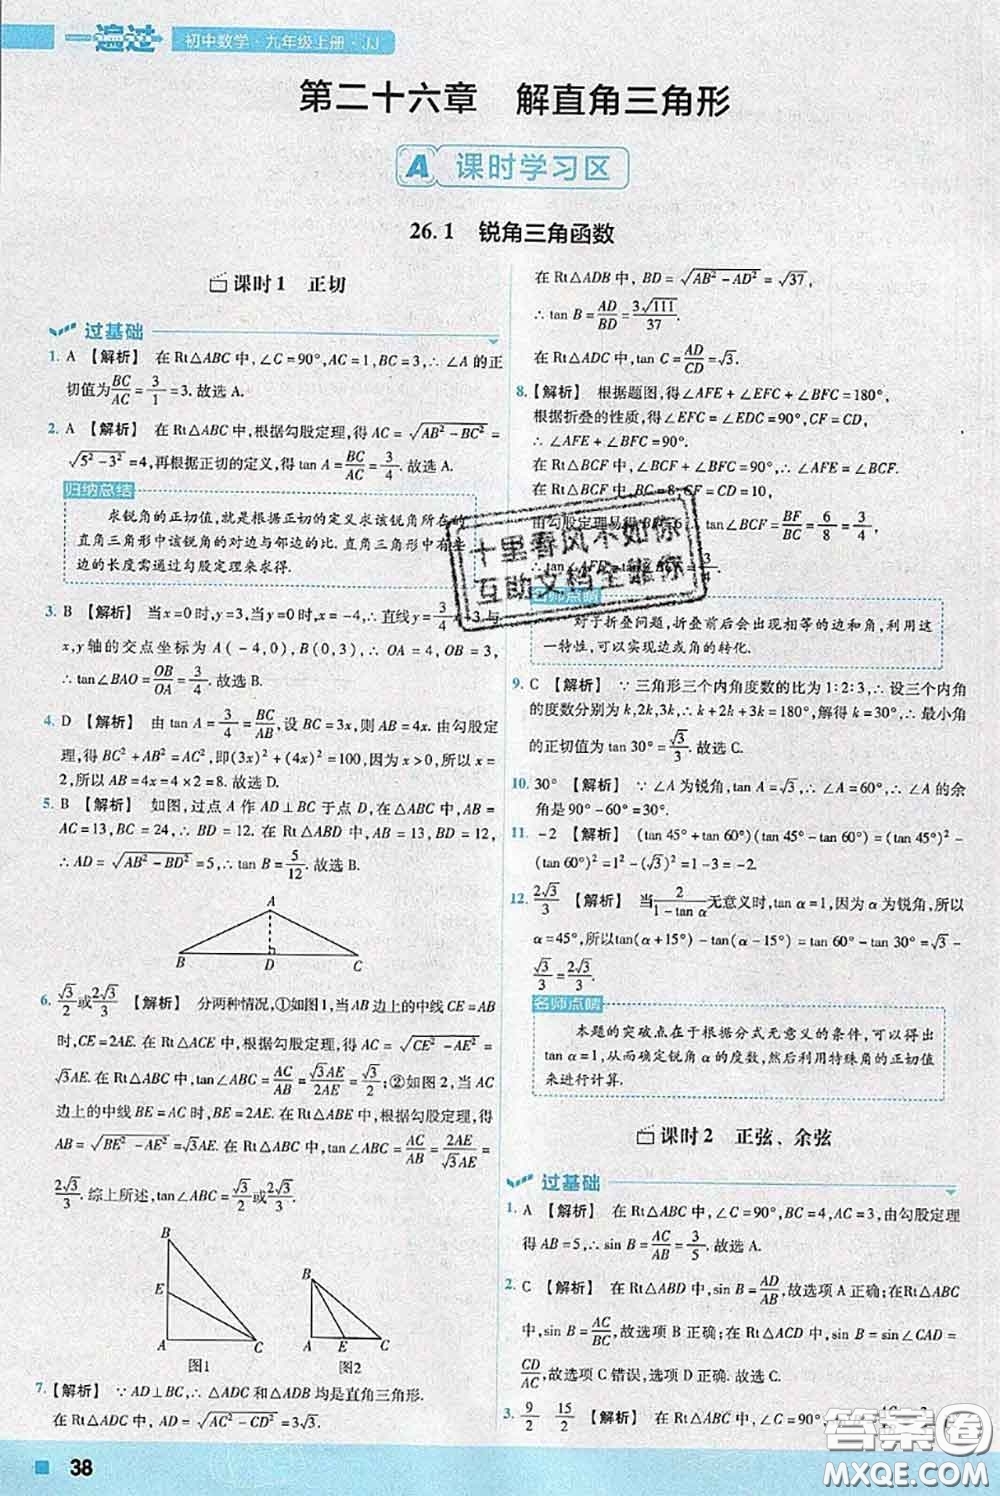 一遍过 初中数学·九年级上册·JJ
第二十六章 解直角三角形
A 课时学习区
26.1 锐角三角函数
课时1 正切
过基础
1. A 【解析】 在Rt△ABC中,∠C=90°,AC=1,BC=3,∴∠A的正
切值为BC/AC=3/1=3.故选A.
2. A 【解析】 在Rt△ABC中,根据勾股定理,得AC=√(AB²-BC²)=
√(5²-3²)=4,再根据正切的定义,得tan A=BC/AC=3/4.故选A.
归纳总结
求锐角的正切值,就是根据正切的定义求该锐角所在的
直角三角形中该锐角的对边与邻边的比.直角三角形中有些
边的长度需通过勾股定理来求得.
3. B 【解析】 当x=0时,y=3,当y=0时,x=-4,∴直线y=3/4x+3与
x,y轴的交点坐标为A(-4,0),B(0,3),∴OA=4,OB=3,
∴tan∠BAO=OB/OA=3/4.故选B.
4. D 【解析】 由tan A=3/4=BC/AB,设BC=3x,则AB=4x.由勾股定
理,得BC²+AB²=AC²,即(3x)²+(4x)²=100,因为x>0,所以x=
2,所以AB=4x=4×2=8.故选D.
5. B 【解析】 如图,过点A作AD⊥BC于点D,在△ABC中,AB=
AC=13,BC=24,∴BD=12.在Rt△ABD中,AB=13,BD=12,
∴AD=√(AB²-BD²)=5,∴tan B=5/12.故选B.
A
B D C
6. √3/2或2√3/3 【解析】 分两种情况,①如图1,当AB边上的中线CE=AB
时,CE=2AE.在Rt△ACE中,根据勾股定理,得AC=√(CE²-AE²)=
√3AE.在Rt△ABC中,tan∠ABC=AC/AB=√3AE/2AE=√3/2;②如图2,当AC
边上的中线BE=AC时,BE=2AE.在Rt△ABE中,根据勾股定理,得
AB=√(BE²-AE²)=√3AE.在Rt△ABC中,tan∠ABC=AC/AB=2AE/√3AE=
2√3/3.综上所述,tan∠ABC=√3/2或2√3/3.
B
E
A C
图1
B
A E C
图2
7. 【解析】 ∵AD⊥BC,∴△ADC和△ADB均是直角三角形.
在Rt△ADC中,AD=√(AC²-CD²)=3√3.
38
在Rt△ADB中,BD=√(AB²-AD²)=√37,
∴tan B=AD/BD=3√111/37.
在Rt△ADC中,tan C=AD/CD=√3.
8. 【解析】 根据题图,得∠AFE+∠EFC+∠BFC=180°,
根据折叠的性质,得∠EFC=∠EDC=90°,CF=CD,
∴∠AFE+∠BFC=90°.
在Rt△BCF中,∠BCF+∠BFC=90°,∴∠AFE=∠BCF.
在Rt△BCF中,BC=8,CF=CD=10,
由勾股定理易得BF=6,∴tan∠BCF=BF/BC=6/8=3/4.
名师点睛
对于折叠问题,折叠前后会出现相等的边和角,利用这
一特性,可以实现边或角的转化.
十里春风不如你
互助文档全靠你
9. C 【解析】 ∵三角形三个内角度数的比为1:2:3,∴设三个内角
的度数分别为k,2k,3k,∴k+2k+3k=180°,解得k=30°,∴最小角
的正切值为tan 30°=√3/3.故选C.
10. 30° 【解析】 ∵∠A为锐角,tan A=√3,∴∠A=60°,∴∠A的余
角是90°-60°=30°.
11. -2 【解析】 (tan 45°+tan 60°)(tan 45°-tan 60°)=(tan 45°)²-
(tan 60°)²=1²-(√3)²=1-3=-2.
12. 2√3/3 【解析】 当2/(1-tan α)无意义时,tan α=1,因为α为锐角,所以
α=45°,所以tan(α+15°)-tan(α-15°)=tan 60°-tan 30°=√3-
√3/3=2√3/3.
名师点睛
本题的突破点在于根据分式无意义的条件,可以得出
tan α=1,从而确定锐角α的度数,然后利用特殊角的正切值
来进行计算.
课时2 正弦、余弦
过基础
1. A 【解析】 在Rt△ABC中,∠C=90°,BC=4,AC=3,由勾股定理
得AB=5,∴sin B=AC/AB=3/5.故选A.
2. C 【解析】 在Rt△ABD中,sin B=AD/AB,故选项A正确;在Rt△ABC
中,sin B=AC/BC,故选项B正确;在Rt△ACD中,sin B=sin∠CAD=
CD/AC,故选项C错误,选项D正确.故选C.
3. 9/2 15/2 【解析】 在Rt△ABC中,∠C=90°,
答案圈
MXQE.COM